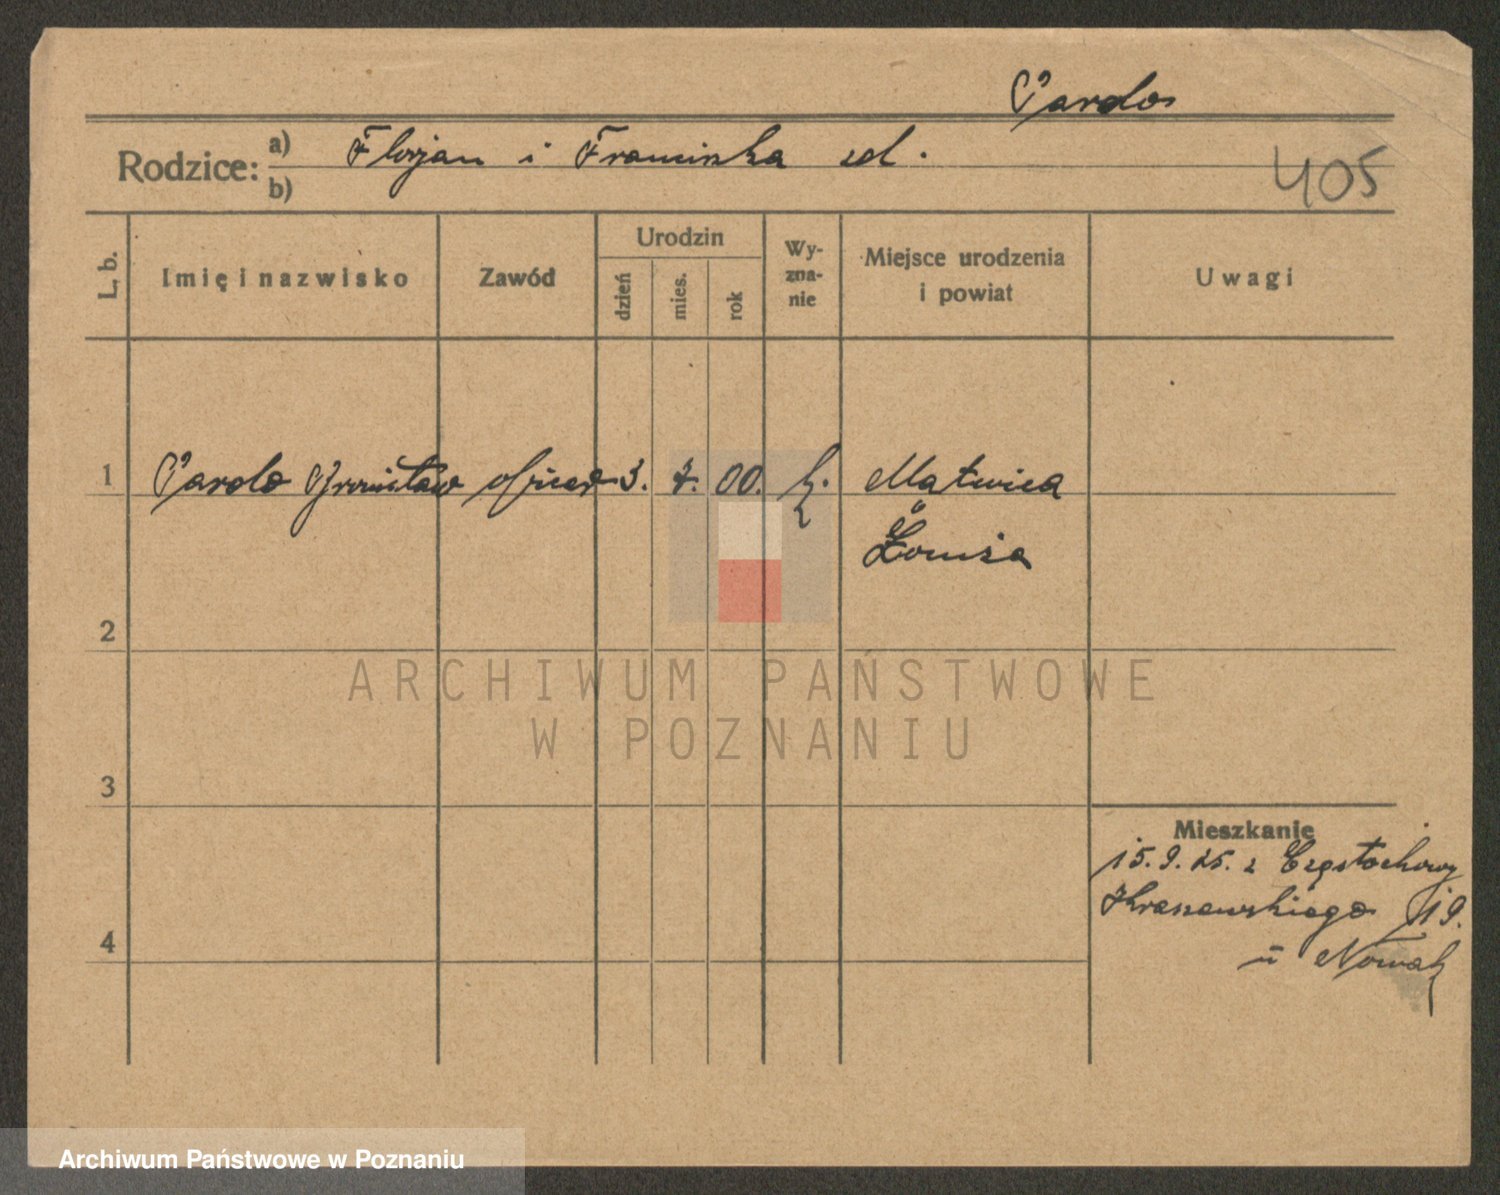 Pardo
Rodzice: a) Florjan i Franciszka zd.
b)
405
L. b.
Imię i nazwisko
Zawód
Urodzin
dzień
mies.
rok
Wy-
zna-
nie
Miejsce urodzenia
i powiat
Uwagi
1 Pardo Bronisław oficer 3. 7. 00. k. Matwica
Łomża
2
3
4
Mieszkanie
15.9.25. z Częstochowy
Kraszewskiego 19.
u Nowak
ARCHIWUM PAŃSTWOWE
W POZNANIU
Archiwum Państwowe w Poznaniu